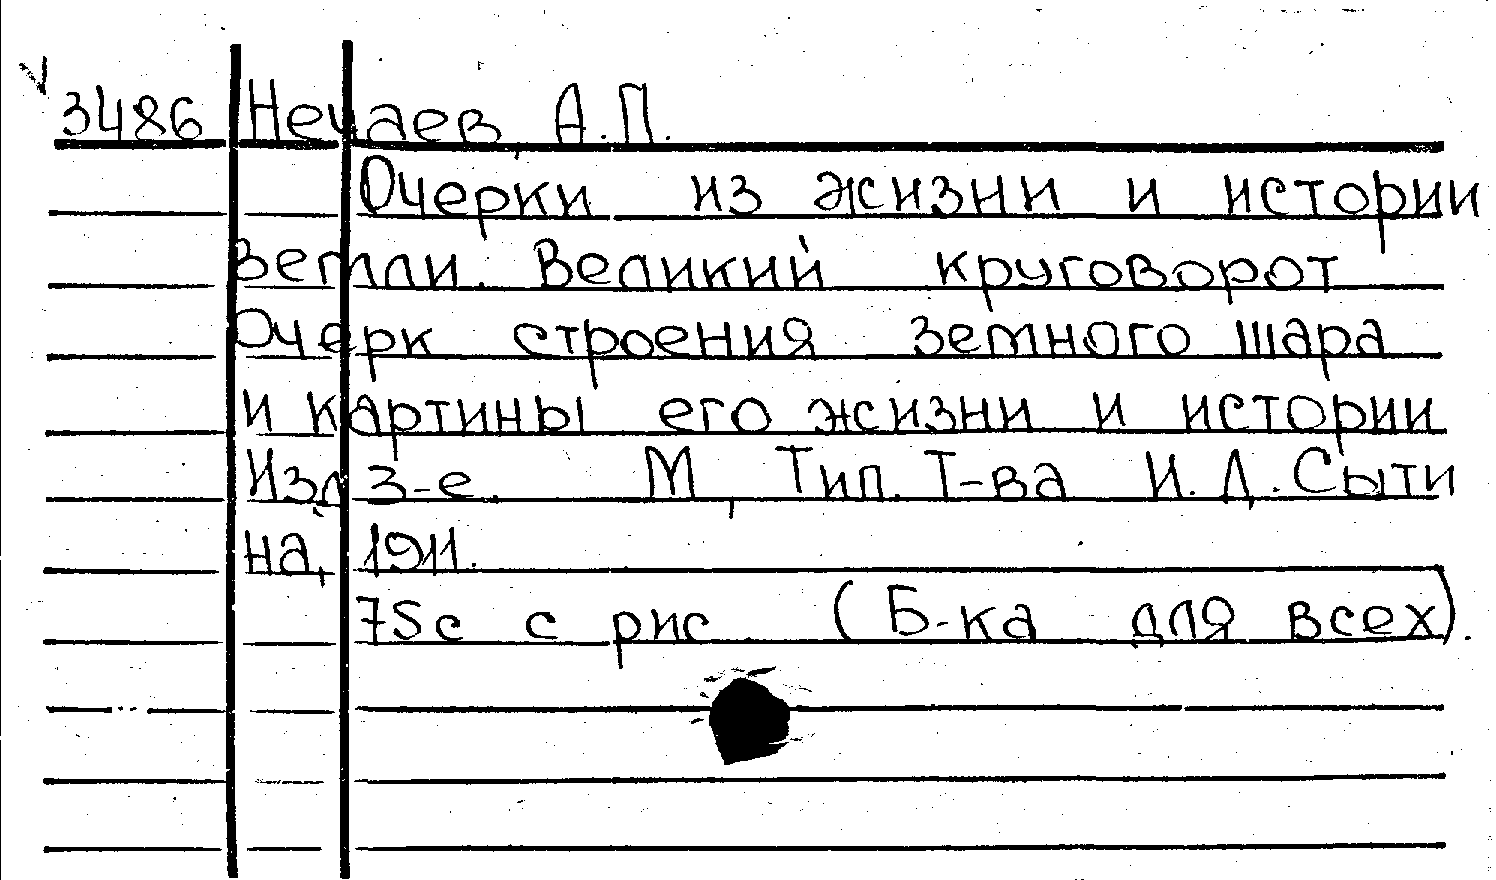 √ 3486 Нечаев, А.П.
Очерки из жизни и истории
земли. Великий круговорот
Очерк строения земного шара
и картины его жизни и истории
Изд. 3-е. М, Тип. Т-ва И. Д. Сыти
на, 1911.
75с с рис (Б-ка для всех).